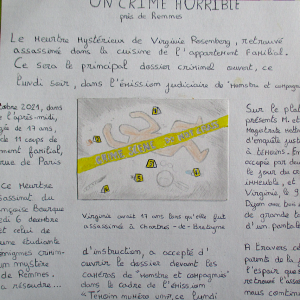 UN CRIME HORRIBLE
près de Rennes
Le Meurtre Mystérieux de Virginie Rosemberg, retrouvé
assassiné dans la cuisine de l'appartement familial.
Ce sera le principal dossier criminel ouvert, ce
lundi soir, dans l'émission judiciaire de "Monstre et compagnie"
2021, dans
l'après-midi,
âgée de 17 ans,
de 11 coups de
ment familial,
rue de Paris
Ce Meurtre
assassinat du
ançoise Bourque
di 6 décembre
et celui de
une étudiante
énigmes crimin-
un mystère
de Rennes.
a résoudre...
CRIME SCENE DO NOT CROSS
Virginie avait 17 ans lors qu'elle fut
assassiné à Chartres-de-Bretagne
d'instruction, a accepté d'
ouvrir le dossier devant les
caméras de "Monstre et compagnie"
dans le cadre de l'émission
"Témoin numéro une", ce lundi
Sur le plat
présents M. et
Magistrats
d'enquête just
à témoins. En
accepté par
le jour du
immeuble, et
Virginie, le
Dijon aux
de grande t
d'un pantalo
A travers
parents de la
l'espoir que
retrouvé l'ass
nous contem